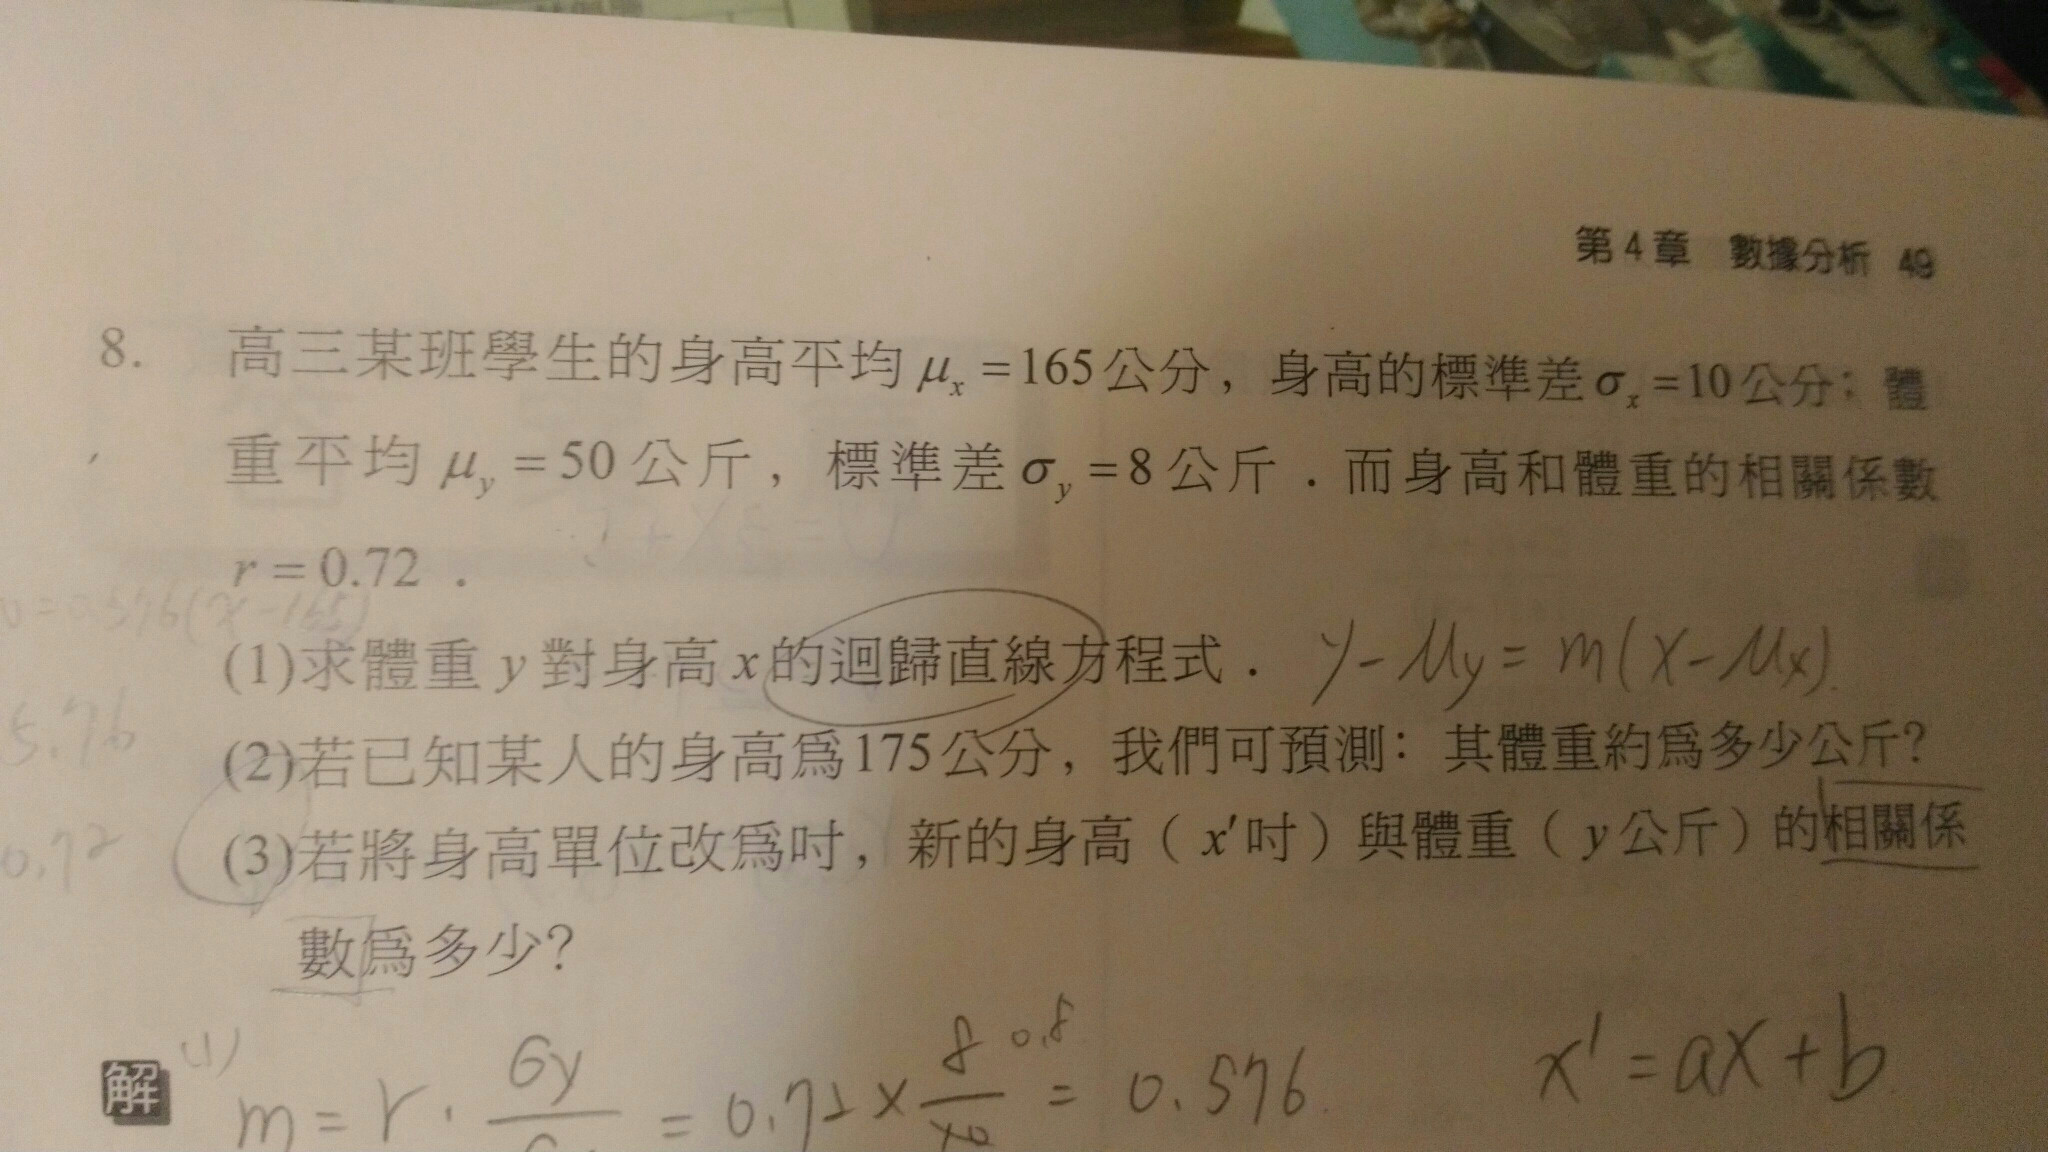 第4章 數據分析 49
8. 高三某班學生的身高平均 μx = 165 公分，身高的標準差 σx = 10 公分；體
重平均 μy = 50 公斤，標準差 σy = 8 公斤．而身高和體重的相關係數
r = 0.72．
0=0.576(x-165)
(1)求體重 y 對身高 x 的迴歸直線方程式． y-μy = m(x-μx).
5.76
(2)若已知某人的身高爲175公分，我們可預測：其體重約爲多少公斤?
0.72
(3)若將身高單位改爲吋，新的身高（x'吋）與體重（y公斤）的相關係
數爲多少?
解 (1) m = r · σy = 0.72 × 8 0.8 = 0.576 x' = ax + b